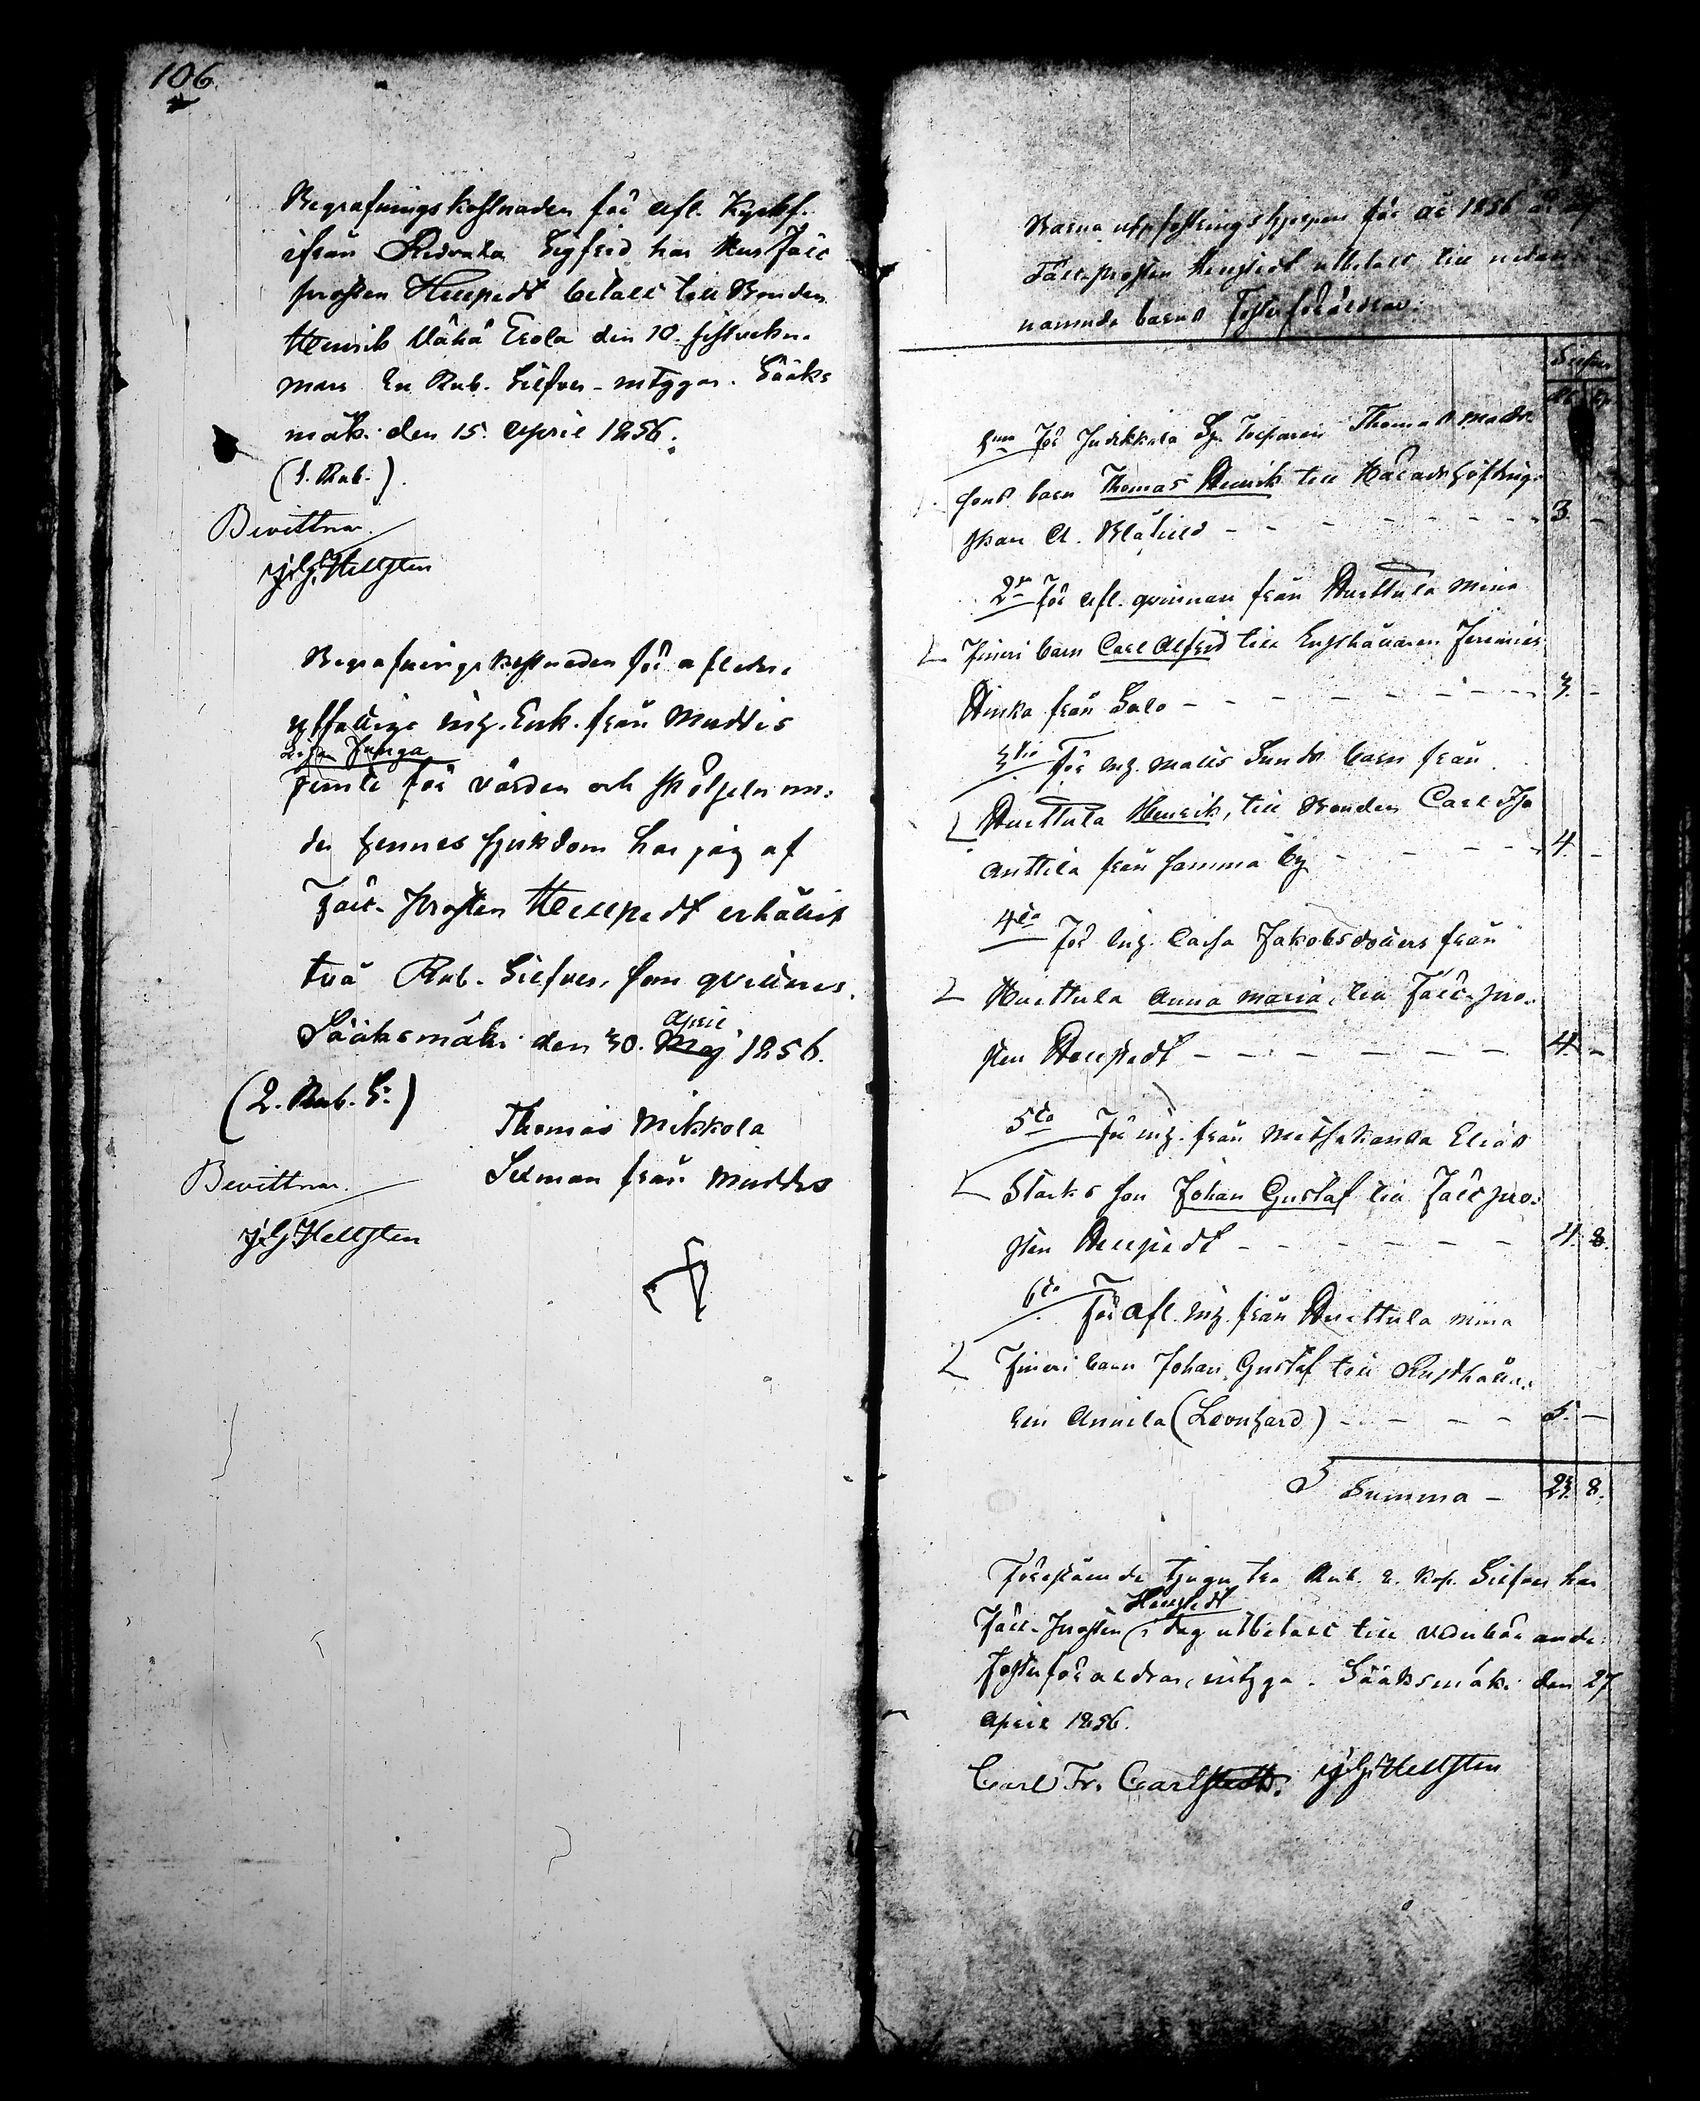 106.
Begrafningskostnaden för afl. Kyrkf.
ifrån Ridvala Sigfrid har Hus Fält
prosten Hellstedt betalt till Bonden
Henrik Vähä Erola den 10. sistvekne
mars En Rub. Silfver - intygar. Sääks
mäki den 15. April 1856.
(1. Rub.).
Bevittnar.
J. G. Hellsten
Begrafningskostnaden för afledne
ytfattige inh. Enk. från Muddis
Lisa Junga
jemte för vården och skötseln un:
der hennes sjukdom har jag af
Fält-Prosten Hellstedt erhållit
två Rub. Silfver, som qvitteras.
April
Sääksmäki den 30. Maj 1856.
(2. Rub. S:)
Thomas Mikkola
Bevittnar.
Setman från Muddis
J. G. Hellsten
Barna uppfostringshjelpen för år 1856 är af
Fält-Prosten Hellstedt utbetalt till nedan
namnde barns Fosterföräldrar.
Silfver
1mo För Judikkala Sp. Torparen Thomas Matts
sons barn Thomas Henrik till Häradshöfding:
skan A. Blåfield - - - - - - 3. -
2do För afl. qvinnan från Huittula Mina
Fineri barn Carl Alfred till Enghällaren Jeremias
Hinka från Salo - - - - - - 3. -
3tio För inh. Matts Sunds barn från
Huittula Henrik, till Bonden Carl Iso
Anttila från samma by - - - - 4. -
4to För Inh. Caisa Jakobsdotters från
Huittula Anna Maria, till Fält-pro-
sten Hellstedt - - - - - - 4. -
5to För inh. från Metsäkansa Elias
Starks son Johan Gustaf till Fältpro:
sten Hellstedt - - - - - - 4. 8.
6to För afl. inh. från Huittula Mina
Fineri barn Johan Gustaf till Rusthålla:
ren Annila (Leonhard) - - - - 5. -
Summa - 23. 8.
Förestående tjugu tre Rub. 8. Kop. Silfver har
Hellstedt
Fält-Prosten i dag utbetalt till vederbörande
fosterföräldrar, intyga. Sääksmäki den 27
April 1856.
Carl Fr. Carlstedt. J. G. Hellsten